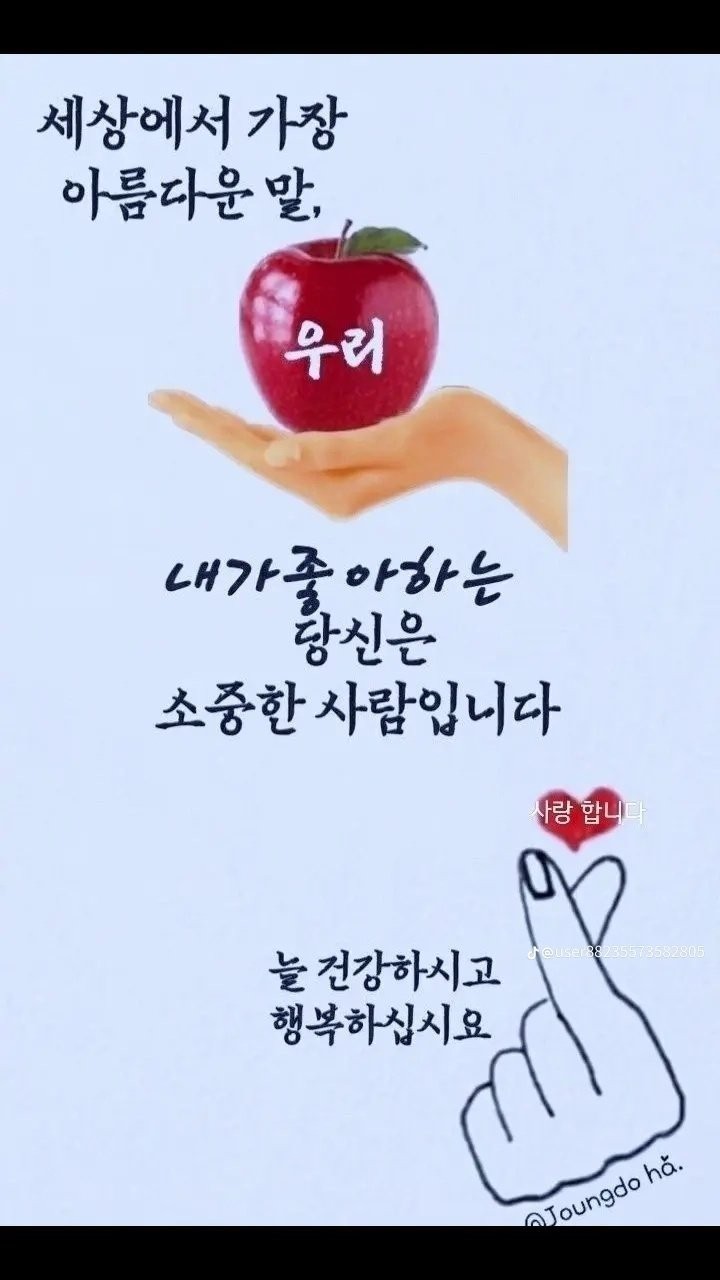 세상에서 가장
아름다운 말,
우리
내가좋아하는
당신은
소중한 사람입니다
사랑 합니다
@user38235573582805
늘 건강하시고
행복하십시요
@Joungdo hă.